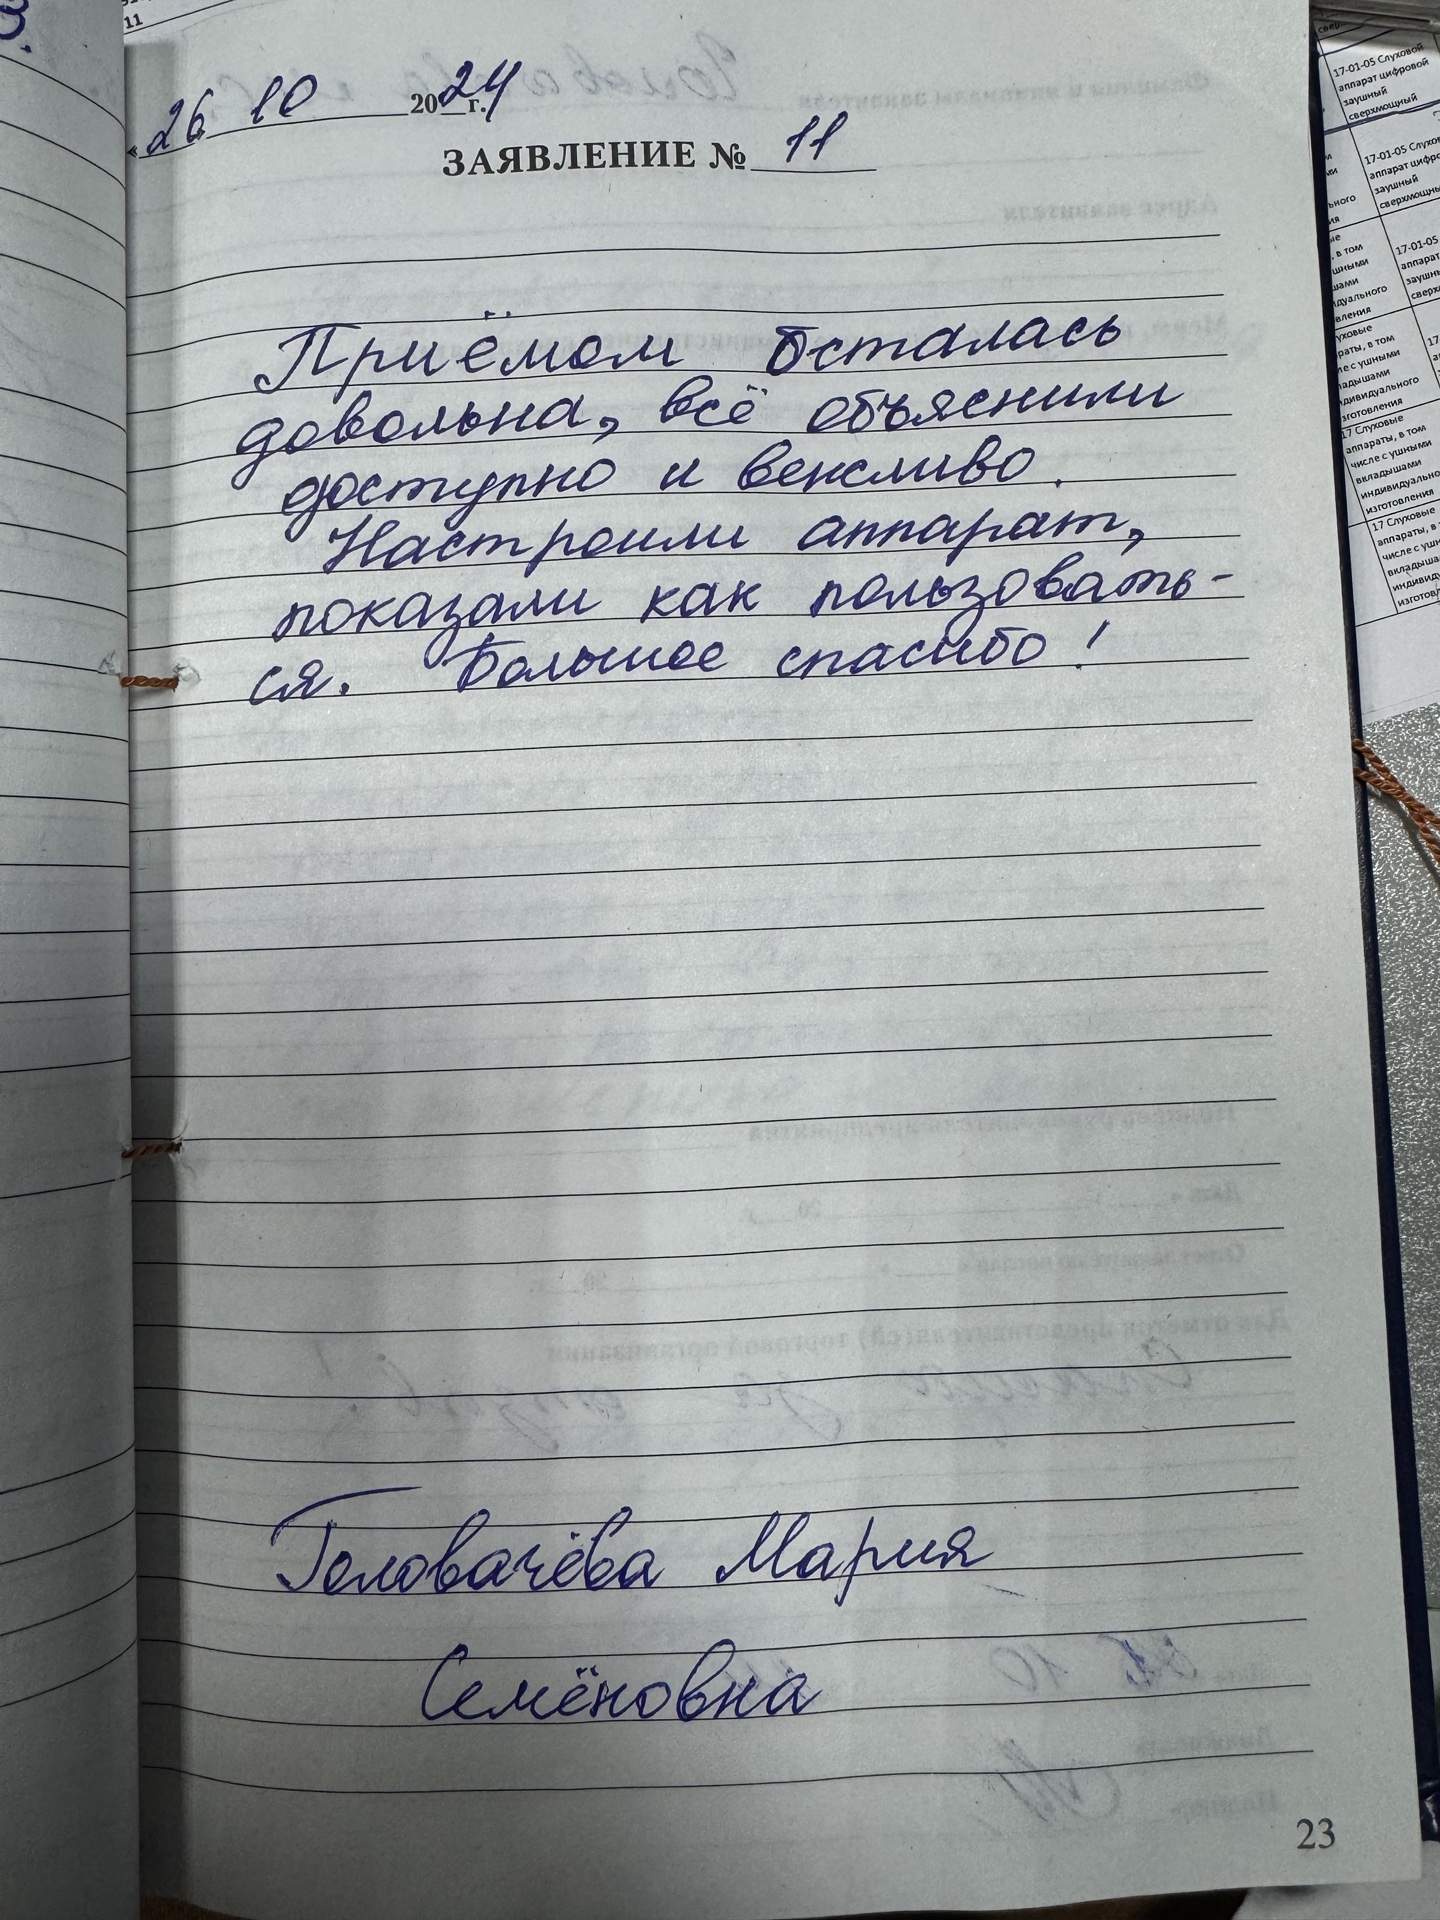 «26» 10 2024 г.
ЗАЯВЛЕНИЕ № 11
Приёмом осталась
довольна, всё объяснили
доступно и вежливо.
Настроили аппарат,
показали как пользовать-
ся. Большое спасибо!
Головачёва Мария
Семёновна
23
11
17-01-05 Слуховой
аппарат цифровой
заушный
сверхмощный
17-01-05
заушный
17-01-05
аппарат
индивидуального
17 Слуховые
аппараты, в том
числе с ушными
вкладышами
изготовления
17 Слуховые